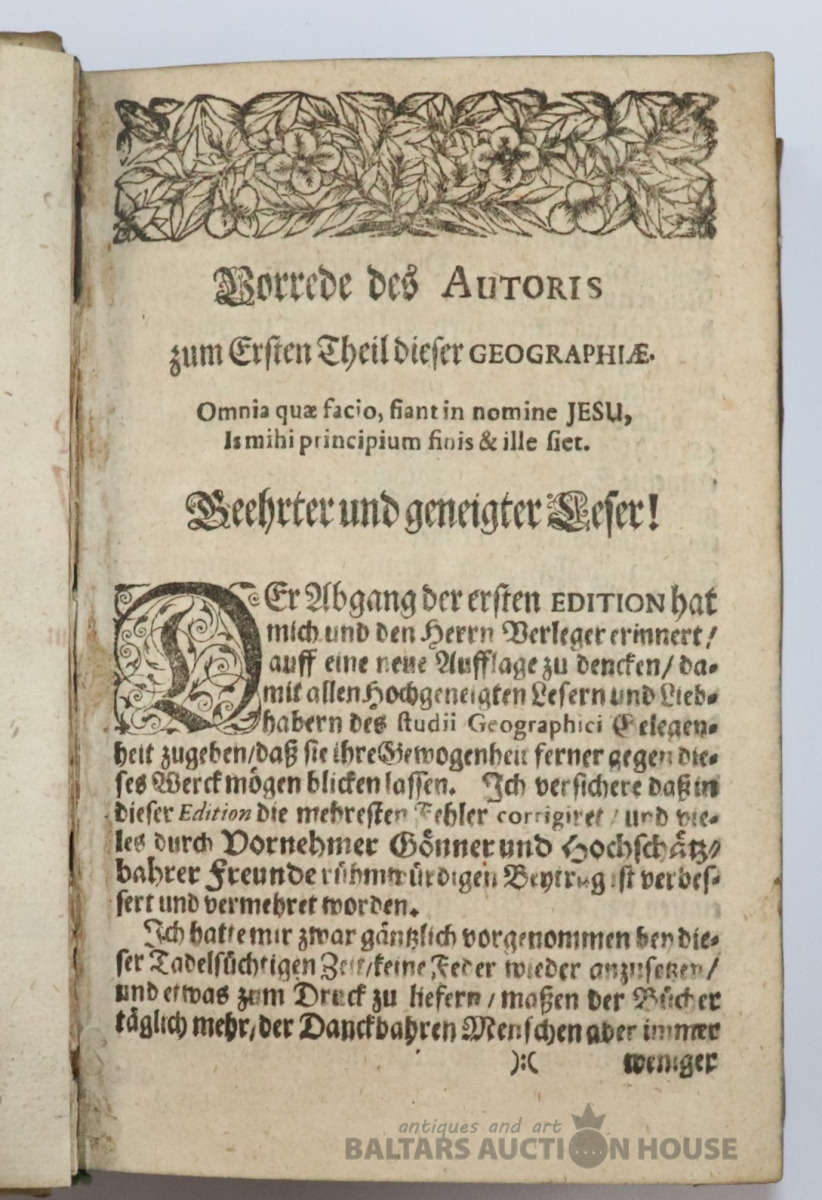 Vorrede des AUTORIS
zum Ersten Theil dieser GEOGRAPHIÆ.
Omnia quæ facio, fiant in nomine JESU,
Is mihi principium finis & ille fiet.
Geehrter und geneigter Leser!
DEr Abgang der ersten EDITION hat
mich und den Herrn Verleger erinnert/
auff eine neue Aufflage zu dencken/ da-
mit allen Hochgeneigten Lesern und Lieb-
habern des studii Geographici Gelegen-
heit zugeben/daß sie ihre Gewogenheit ferner gegen die-
ses Werck mögen blicken lassen. Ich versichere daß in
dieser Edition die mehresten Fehler corrigiret / und vie-
les durch Vornehmer Gönner und Hochschätz-
bahrer Freunde rühmwürdigen Beytrag ist verbes-
sert und vermehret worden.
Ich hatte mir zwar gäntzlich vorgenommen bey die-
ser Tadelsüchtigen Zeit/keine Feder wieder anzusetzen/
und etwas zum Druck zu liefern/ maßen der Bücher
täglich mehr/der Danckbahren Menschen aber immer
):( weniger
antiques and art
BALTARS AUCTION HOUSE